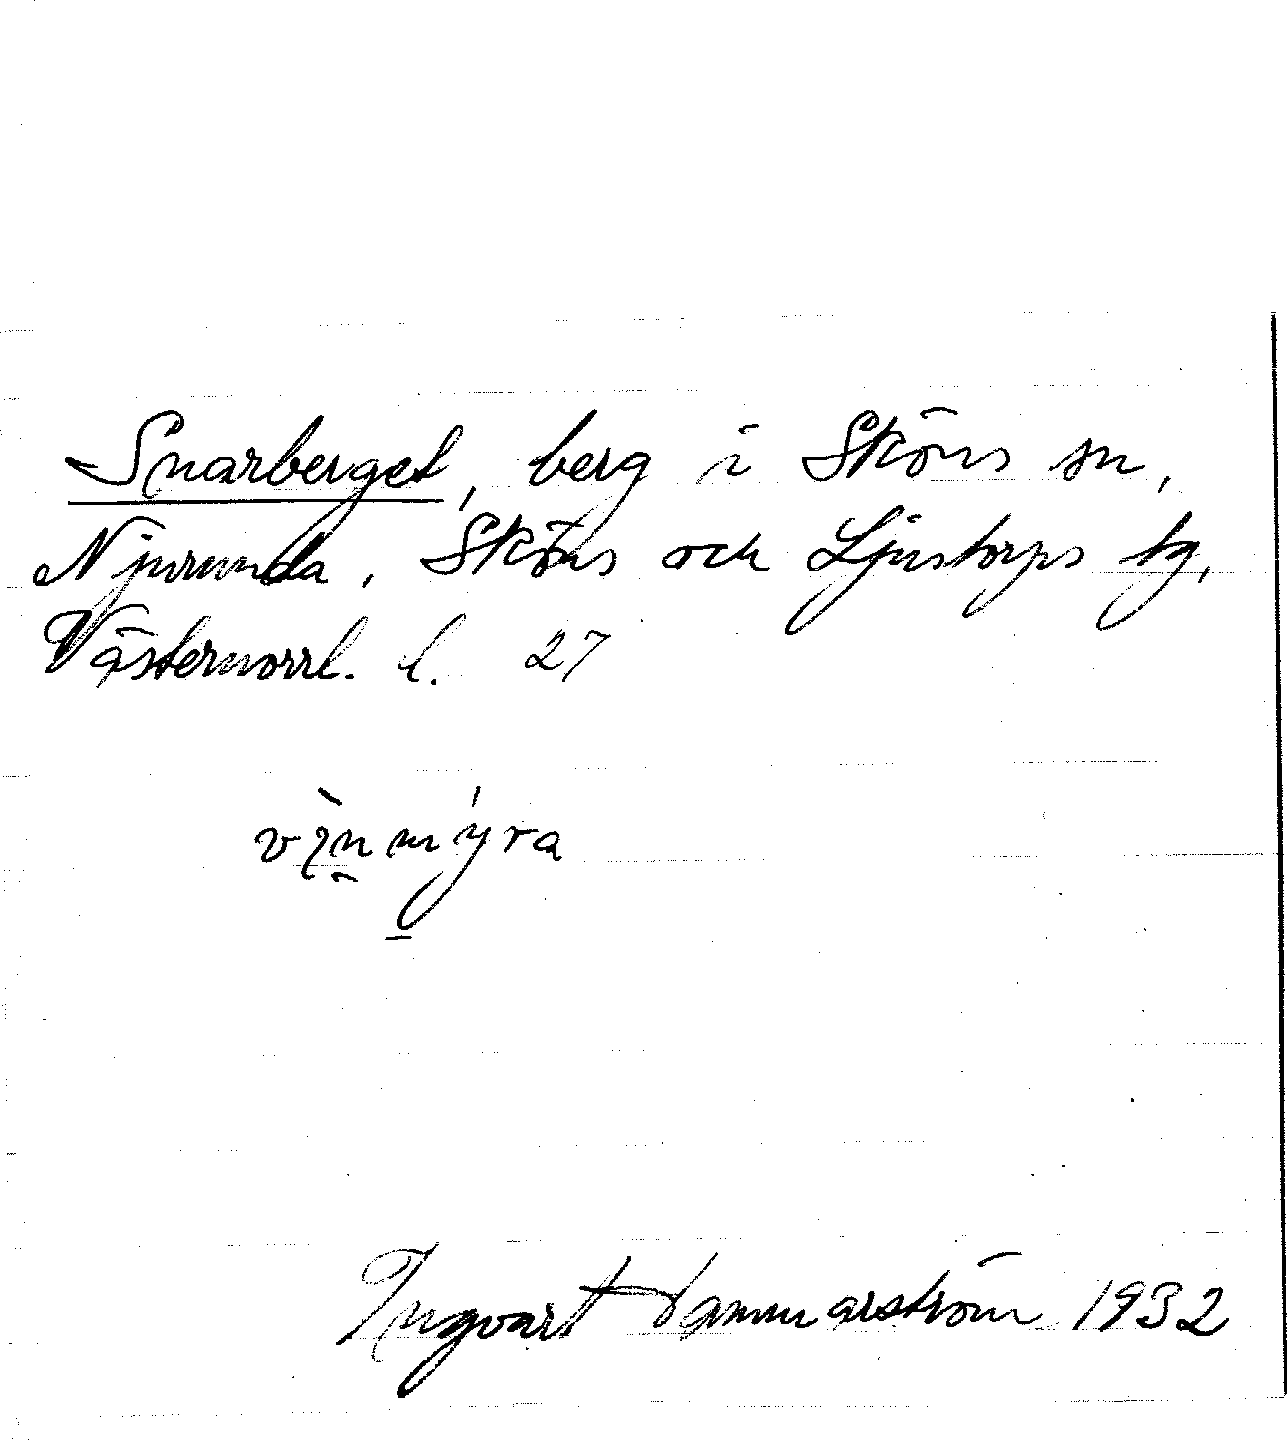 Snarberget, berg i Sköns sn,
Njurunda, Sköns och Ljustorps tg,
Västernorrl. l. 27
Ingvart Hammarström 1932